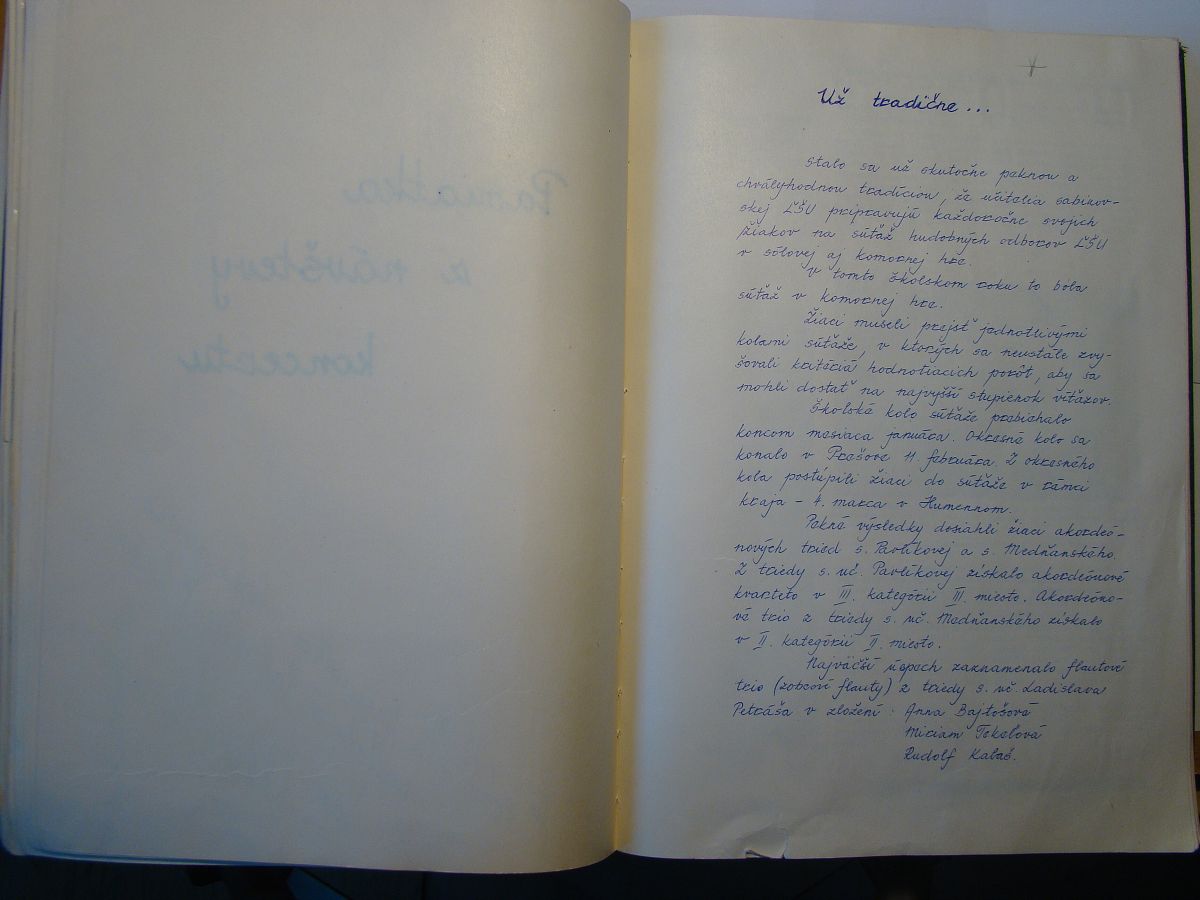 Pamiatka
z návštevy
koncertu
Už tradične...
Stalo sa už skutočne peknou a
chvályhodnou tradíciou, že učitelia sabinov-
skej ĽŠU pripravujú každoročne svojich
žiakov na súťaž hudobných odborov ĽŠU
v sólovej aj komornej hre.
V tomto školskom roku to bola
súťaž v komornej hre.
Žiaci museli prejsť jednotlivými
kolami súťaže, v ktorých sa neustále zvy-
šovali kritériá hodnotiacich porôt, aby sa
mohli dostať na najvyšší stupienok víťazov.
Školské kolo súťaže prebiehalo
koncom mesiaca januára. Okresné kolo sa
konalo v Prešove 11. februára. Z okresného
kola postúpili žiaci do súťaže v rámci
kraja - 4. marca v Humennom.
Pekné výsledky dosiahli žiaci akordeó-
nových tried s. Pavlíkovej a s. Medňanského.
Z triedy s. uč. Pavlíkovej získalo akordeónové
kvarteto v III. kategórii III. miesto. Akordeóno-
vé trio z triedy s. uč. Medňanského získalo
v II. kategórii II. miesto.
Najväčší úspech zaznamenalo flautové
trio (zobcové flauty) z triedy s. uč. Ladislava
Petráša v zložení: Anna Bajtošová
Miriam Tekeľová
Rudolf Kalaš.